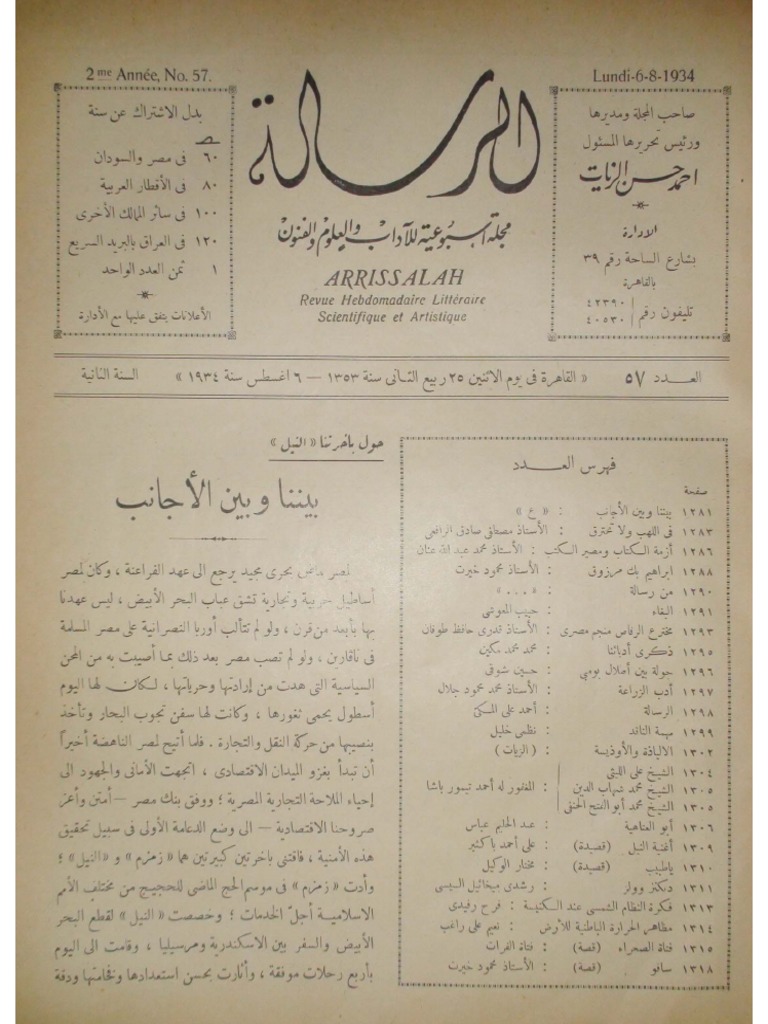 2me Année, No. 57.
Lundi-6-8-1934
صاحب المجلة ومديرها
ورئيس تحريرها المسئول
احمد حسن الزيات
الادارة
بشارع الساحة رقم ٣٩
بالقاهرة
تليفون رقم ٤٢٣٩٠
٤٠٥٣٠
الرسالة
مجلة أسبوعية للآداب والعلوم والفنون
ARRISSALAH
Revue Hebdomadaire Littéraire
Scientifique et Artistique
بدل الاشتراك عن سنة
٦٠ فى مصر والسودان
٨٠ فى الأقطار العربية
١٠٠ فى سائر الممالك الأخرى
١٢٠ فى العراق بالبريد السريع
١ ثمن العدد الواحد
الأعلانات يتفق عليها مع الأدارة
العـدد ٥٧
« القاهرة فى يوم الاثنين ٢٥ ربيع الثانى سنة ١٣٥٣ — ٦ اغسطس سنة ١٩٣٤ »
السنة الثانية
فهرس العـدد
صفحة
١٢٨١ بيننا وبين الأجانب : « ع »
١٢٨٣ فى اللهب ولا تحترق : الأستاذ مصطفى صادق الرافعى
١٢٨٦ أزمة الكتاب ومصير الكتب : الأستاذ محمد عبد الله عنان
١٢٨٨ ابراهيم بك مرزوق : الأستاذ محمود خيرت
١٢٩٠ من رسالة : « ... »
١٢٩١ البقاء : حبيب المعوشى
١٢٩٣ مخترع الرقاص منجم مصرى : الأستاذ قدرى حافظ طوقان
١٢٩٥ ذكرى أدبائنا : محمد محمد مكين
١٢٩٦ جولة بين أطلال بومبى : حسين شوقى
١٢٩٧ أدب الزراعة : الأستاذ محمد محمود جلال
١٢٩٨ الرسالة : أحمد على
١٢٩٩ مهمة الناقد : نظمى خليل
١٣٠٢ الالياذة والأوذيسة : ( الزيات )
١٣٠٤ الشيخ على الليثى
١٣٠٥ الشيخ محمد شهاب الدين : المغفور له أحمد تيمور باشا
١٣٠٥ الشيخ محمد أبو الفتح الحنفى
١٣٠٦ أبو العتاهية : عبد الحليم عباس
١٣٠٩ أغنية النيل (قصيدة) : على أحمد باكثير
١٣١٠ ياطبيب (قصيدة) : مختار الوكيل
١٣١١ دكنز وولز : رشدى ميخائيل السيسى
١٣١٣ فكرة النظام الشمسى عند الكنيسة : فرح رفيدى
١٣١٤ مظاهر الحرارة الباطنية للأرض : نعيم على راغب
١٣١٥ فتاة الصحراء (قصة) : فتاة الفرات
١٣١٨ سافو (قصة) : الأستاذ محمود خيرت
حول باخرتنا « النيل »
بيننا وبين الأجانب
لمصر ماض بحرى مجيد يرجع الى عهد الفراعنة ، وكان لمصر
أساطيل حربية وتجارية تشق عباب البحر الأبيض ، ليس عهدنا
بها بأبعد من قرن ، ولو لم تتألب أوربا النصرانية على مصر المسلمة
فى ناڤارين ، ولو لم تصب مصر بعد ذلك بما أصيبت به من المحن
السياسية التى هدت من إرادتها وحرياتها ، لكان لها اليوم
أسطول يحمى ثغورها ، وكانت لها سفن تجوب البحار وتأخذ
بنصيبها من حركة النقل والتجارة . فلما أتيح لمصر الناهضة أخيراً
أن تبدأ بغزو الميدان الاقتصادى ، اتجهت الأمانى والجهود الى
إحياء الملاحة التجارية المصرية ؛ ووفق بنك مصر — أمتن وأعز
صروحنا الاقتصادية — الى وضع الدعامة الأولى فى سبيل تحقيق
هذه الأمنية ، فاقتنى باخرتين كبيرتين هما « زمزم » و « النيل » ؛
وأدت « زمزم » فى موسم الحج الماضى للحجيج من مختلف الأمم
الاسلامية أجلّ الخدمات ؛ وخصصت « النيل » لقطع البحر
الأبيض والسفر بين الاسكندرية ومرسيليا ، وقامت الى اليوم
بأربع رحلات موفقة ، وأثارت بحسن استعدادها وفخامتها ودقة